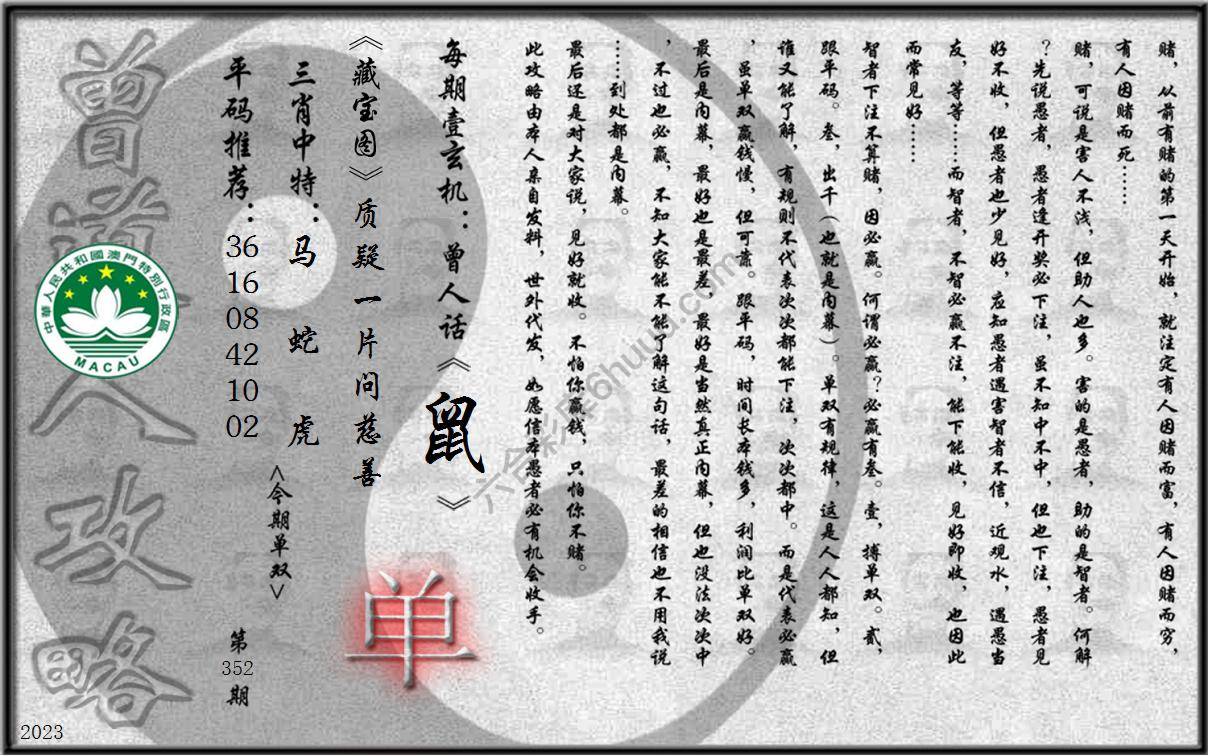 赌，从前有赌的第一天开始，就注定有人因赌而富，有人因赌而穷，
有人因赌而死……
赌，可说是害人不浅，但助人也多。害的是愚者，助的是智者。何解
？先说愚者，愚者逢开奖必下注，虽不知中不中，但也下注，愚者见
好不收，但愚者也少见好，应知愚者遇害智者不信，近观水，遇愚当
友，等等……而智者，不智必赢不注，能下能收，见好即收，也因此
而常见好……
智者下注不算赌，因必赢。何谓必赢？必赢有叁。壹，搏单双。贰，
跟平码。叁，出千（也就是内幕）。单双有规律，这是人人都知，但
谁又能了解，有规则不代表次次都能下注，次次都中。而是代表必赢
，虽单双赢钱慢，但可靠。跟平码，时间长本钱多，利润比单双好。
最后是内幕，最好也是最差，最好是当然真正内幕，但也没法次次中
，不过也必赢，不知大家能不能了解这句话，最差的相信也不用我说
……到处都是内幕。
最后还是对大家说，见好就收。不怕你赢钱，只怕你不赌。
此攻略由本人亲自发料，世外代发，如愿信本愚者必有机会收手。
每期壹玄机：曾人话《鼠》
《藏宝图》质疑一片问慈善
三肖中特：马 蛇 虎
平码推荐：36 16 08 42 10 02
<今期单双>
单
第352期
曾道人攻略
中華人民共和國澳門特別行政區
MACAU
六合彩库6huuu.com
2023